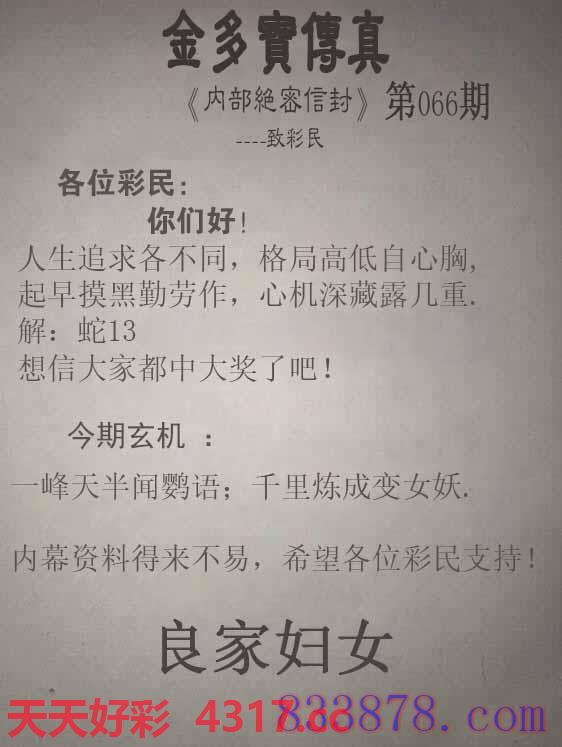 金多寶傳真
《内部絕密信封》第066期
----致彩民
各位彩民:
你们好!
人生追求各不同，格局高低自心胸,
起早摸黑勤劳作，心机深藏露几重.
解：蛇13
想信大家都中大奖了吧!
今期玄机 ：
一峰天半闻鹦语；千里炼成变女妖.
内幕资料得来不易，希望各位彩民支持!
良家妇女
天天好彩 4317.cc
833878.com